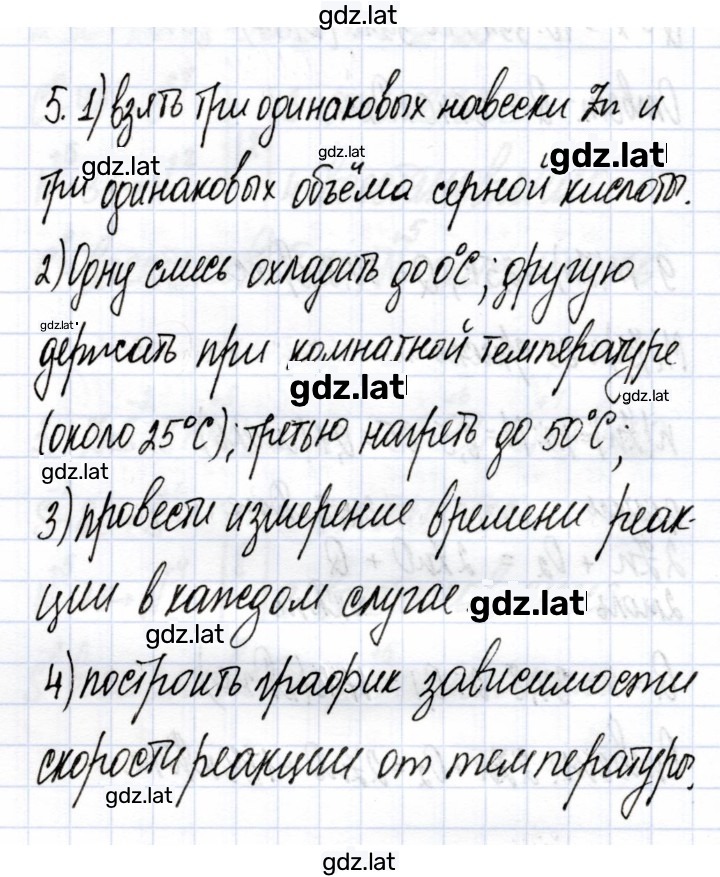 gdz.lat
5. 1) взять три одинаковых навески Zn и
gdz.lat gdz.lat gdz.lat
три одинаковых объёма серной кислоты.
2) Одну смесь охладить до 0°C; другую
gdz.lat
держать при комнатной температуре
gdz.lat gdz.lat
(около 25°C); третью нагреть до 50°C;
gdz.lat
3) провести измерение времени реак-
ции в каждом случае
gdz.lat
gdz.lat
4) построить график зависимости
скорости реакции от температуры.
gdz.lat
gdz.lat